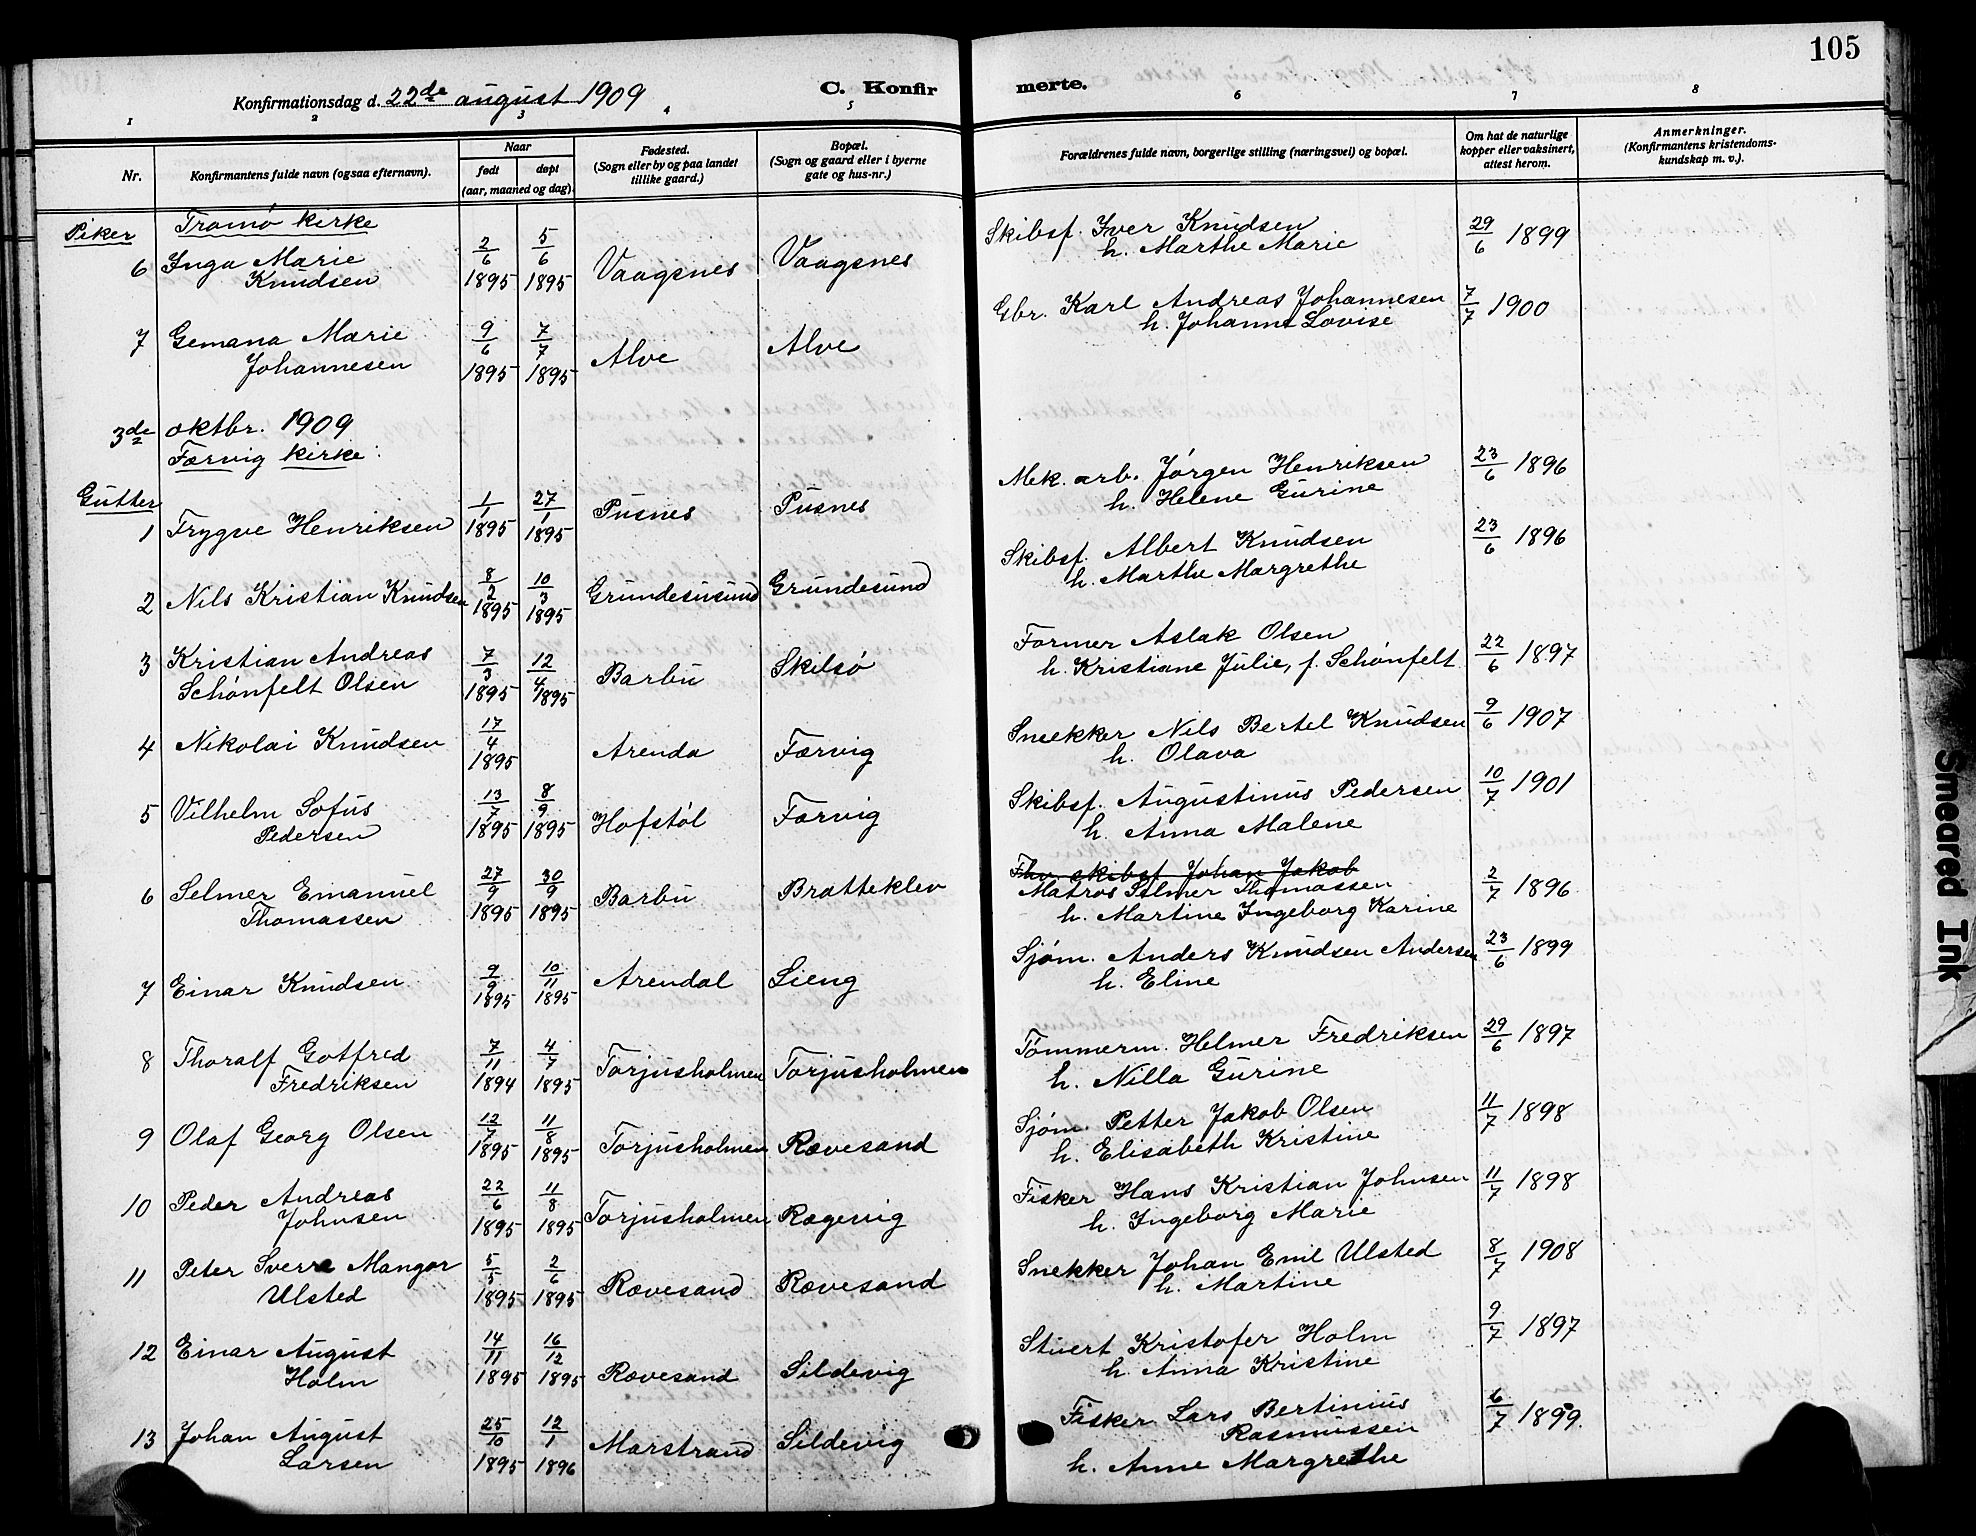 105
Konfirmationsdag d. 22de august 1909
C. Konfirmerte.
1 2 3 4 5 6 7 8
Nr.
Konfirmantens fulde navn (ogsaa efternavn).
Naar
født døpt
(aar, maaned og dag).
Fødested.
(Sogn eller by og paa landet
tillike gaard.)
Bopæl.
(Sogn og gaard eller i byerne
gate og hus-nr.)
Forældrenes fulde navn, borgerlige stilling (næringsvei) og bopæl.
Om hat de naturlige
kopper eller vaksinert,
attest herom.
Anmerkninger.
(Konfirmantens kristendoms-
kundskap m. v.).
Piker Tromø kirke
6 Inga Marie Knudsen 2/6 1895 5/6 1895 Vaagsnes Vaagsnes Skibsf. Iver Knudsen h. Marthe Marie 29/6 1899
7 Gemana Marie Johannesen 9/6 1895 7/7 1895 Alve Alve Gbr. Karl Andreas Johannesen h. Johanne Lovise 7/7 1900
3de oktbr. 1909
Færvig kirke
Gutter
1 Trygve Henriksen 1/1 1895 27/1 1895 Pusnes Pusnes Mek. arb. Jörgen Henriksen h. Helene Gurine 23/6 1896
2 Nils Kristian Knudsen 8/2 1895 10/3 1895 Grundesusund Grundesund Skibsf. Albert Knudsen h. Marthe Margrethe 23/6 1896
3 Kristian Andreas Schönfelt Olsen 7/3 1895 12/4 1895 Barbu Skilsø Former Aslak Olsen h. Kristiane Julie, f. Schönfelt 22/6 1897
4 Nikolai Knudsen 17/4 1895 Arenda Færvig Sneekker Nils Bertel Knudsen h. Olava 9/6 1907
5 Vilhelm Sofus Pedersen 13/7 1895 8/9 1895 Hofstøl Færvig Skibsf. Augustinus Pedersen h. Anna Malene 10/7 1901
6 Selmer Emanuel Thomassen 27/9 1895 30/9 1895 Barbu Bratteklev Fhv. skibsf Johan Jakob Matros Selmer Thomassen h. Martine Ingeborg Karine 2/7 1896
7 Einar Knudsen 9/9 1895 10/11 1895 Arendal Lieng Sjøm. Anders Knudsen Andersen h. Eline 23/6 1899
8 Thoralf Gotfred Fredriksen 7/11 1894 4/7 1895 Torjusholmen Torjusholmen Tömmerm. Helmer Fredriksen h. Nilla Gurine 29/6 1897
9 Olaf Georg Olsen 12/7 1895 11/8 1895 Torjusholmen Rævesand Sjøm. Petter Jakob Olsen h. Elisabeth Kristine 11/7 1898
10 Peder Andreas Johnsen 22/6 1895 11/8 1895 Torjusholmen Rægevig Fisker Hans Kristian Johnsen h. Ingeborg Marie 11/7 1898
11 Peter Sverre Mangor Ulsted 5/5 1895 2/6 1895 Rævesand Rævesand Snekker Johan Emil Ulsted h. Martine 8/7 1908
12 Einar August Holm 14/11 1895 16/12 1895 Rævesand Sildevig Stuert Kristofer Holm h. Anna Kristine 9/7 1897
13 Johan August Larsen 25/10 1895 12/1 1896 Marstrand Sildevig Fisker Lars Bertinius Rasmussen h. Anne Margrethe 6/7 1899.
Smeared Ink